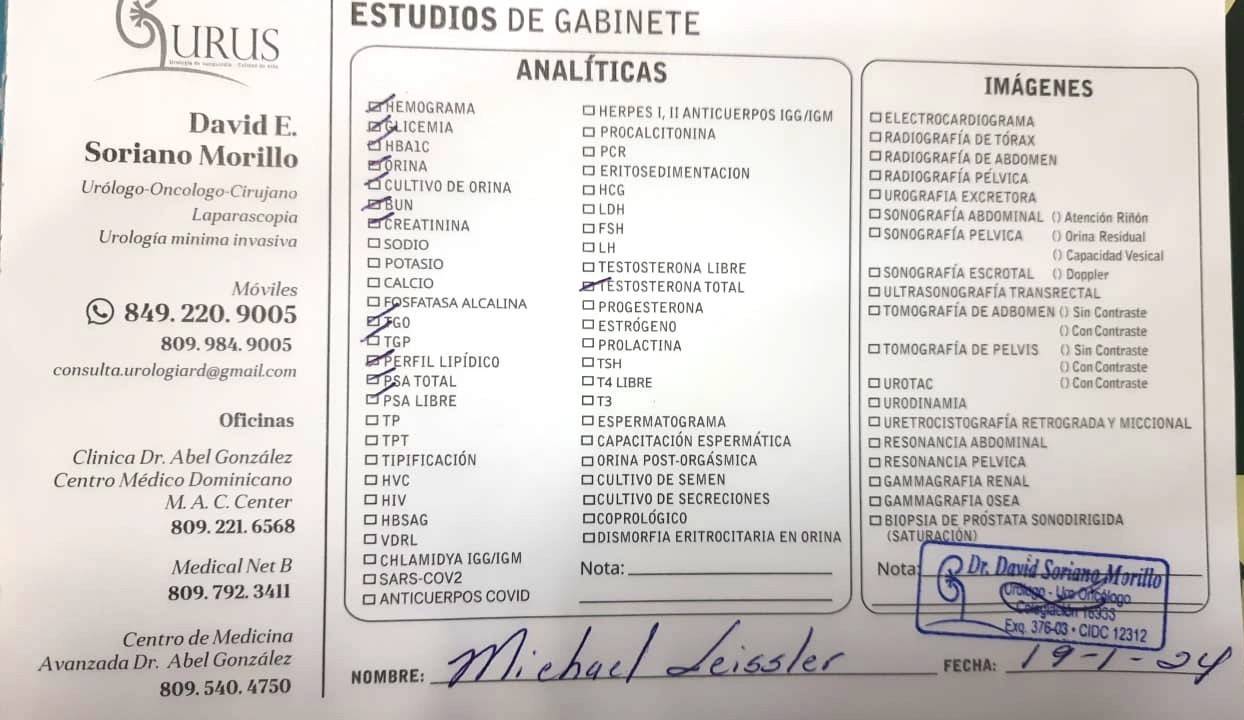 URUS
Urología de vanguardia - Calidad de vida
David E.
Soriano Morillo
Urólogo-Oncologo-Cirujano
Laparascopia
Urología minima invasiva
Móviles
849. 220. 9005
809. 984. 9005
consulta.urologiard@gmail.com
Oficinas
Clinica Dr. Abel González
Centro Médico Dominicano
M. A. C. Center
809. 221. 6568
Medical Net B
809. 792. 3411
Centro de Medicina
Avanzada Dr. Abel González
809. 540. 4750
ESTUDIOS DE GABINETE
ANALÍTICAS
HEMOGRAMA
GLICEMIA
HBA1C
ORINA
CULTIVO DE ORINA
BUN
CREATININA
SODIO
POTASIO
CALCIO
FOSFATASA ALCALINA
TGO
TGP
PERFIL LIPÍDICO
PSA TOTAL
PSA LIBRE
TP
TPT
TIPIFICACIÓN
HVC
HIV
HBSAG
VDRL
CHLAMIDYA IGG/IGM
SARS-COV2
ANTICUERPOS COVID
HERPES I, II ANTICUERPOS IGG/IGM
PROCALCITONINA
PCR
ERITOSEDIMENTACION
HCG
LDH
FSH
LH
TESTOSTERONA LIBRE
TESTOSTERONA TOTAL
PROGESTERONA
ESTRÓGENO
PROLACTINA
TSH
T4 LIBRE
T3
ESPERMATOGRAMA
CAPACITACIÓN ESPERMÁTICA
ORINA POST-ORGÁSMICA
CULTIVO DE SEMEN
CULTIVO DE SECRECIONES
COPROLÓGICO
DISMORFIA ERITROCITARIA EN ORINA
Nota:
IMÁGENES
ELECTROCARDIOGRAMA
RADIOGRAFÍA DE TÓRAX
RADIOGRAFÍA DE ABDOMEN
RADIOGRAFÍA PÉLVICA
UROGRAFIA EXCRETORA
SONOGRAFÍA ABDOMINAL () Atención Riñón
SONOGRAFÍA PELVICA () Orina Residual
() Capacidad Vesical
SONOGRAFÍA ESCROTAL () Doppler
ULTRASONOGRAFÍA TRANSRECTAL
TOMOGRAFÍA DE ADBOMEN () Sin Contraste
() Con Contraste
TOMOGRAFÍA DE PELVIS () Sin Contraste
() Con Contraste
UROTAC () Con Contraste
URODINAMIA
URETROCISTOGRAFÍA RETROGRADA Y MICCIONAL
RESONANCIA ABDOMINAL
RESONANCIA PELVICA
GAMMAGRAFIA RENAL
GAMMAGRAFIA OSEA
BIOPSIA DE PRÓSTATA SONODIRIGIDA
(SATURACIÓN)
Nota:
Dr. David Soriano Morillo
Urólogo - Uro Oncólogo
Colegiación 18333
Exq. 376-03 • CIDC 12312
NOMBRE: Michael Leissler FECHA: 19-1-24